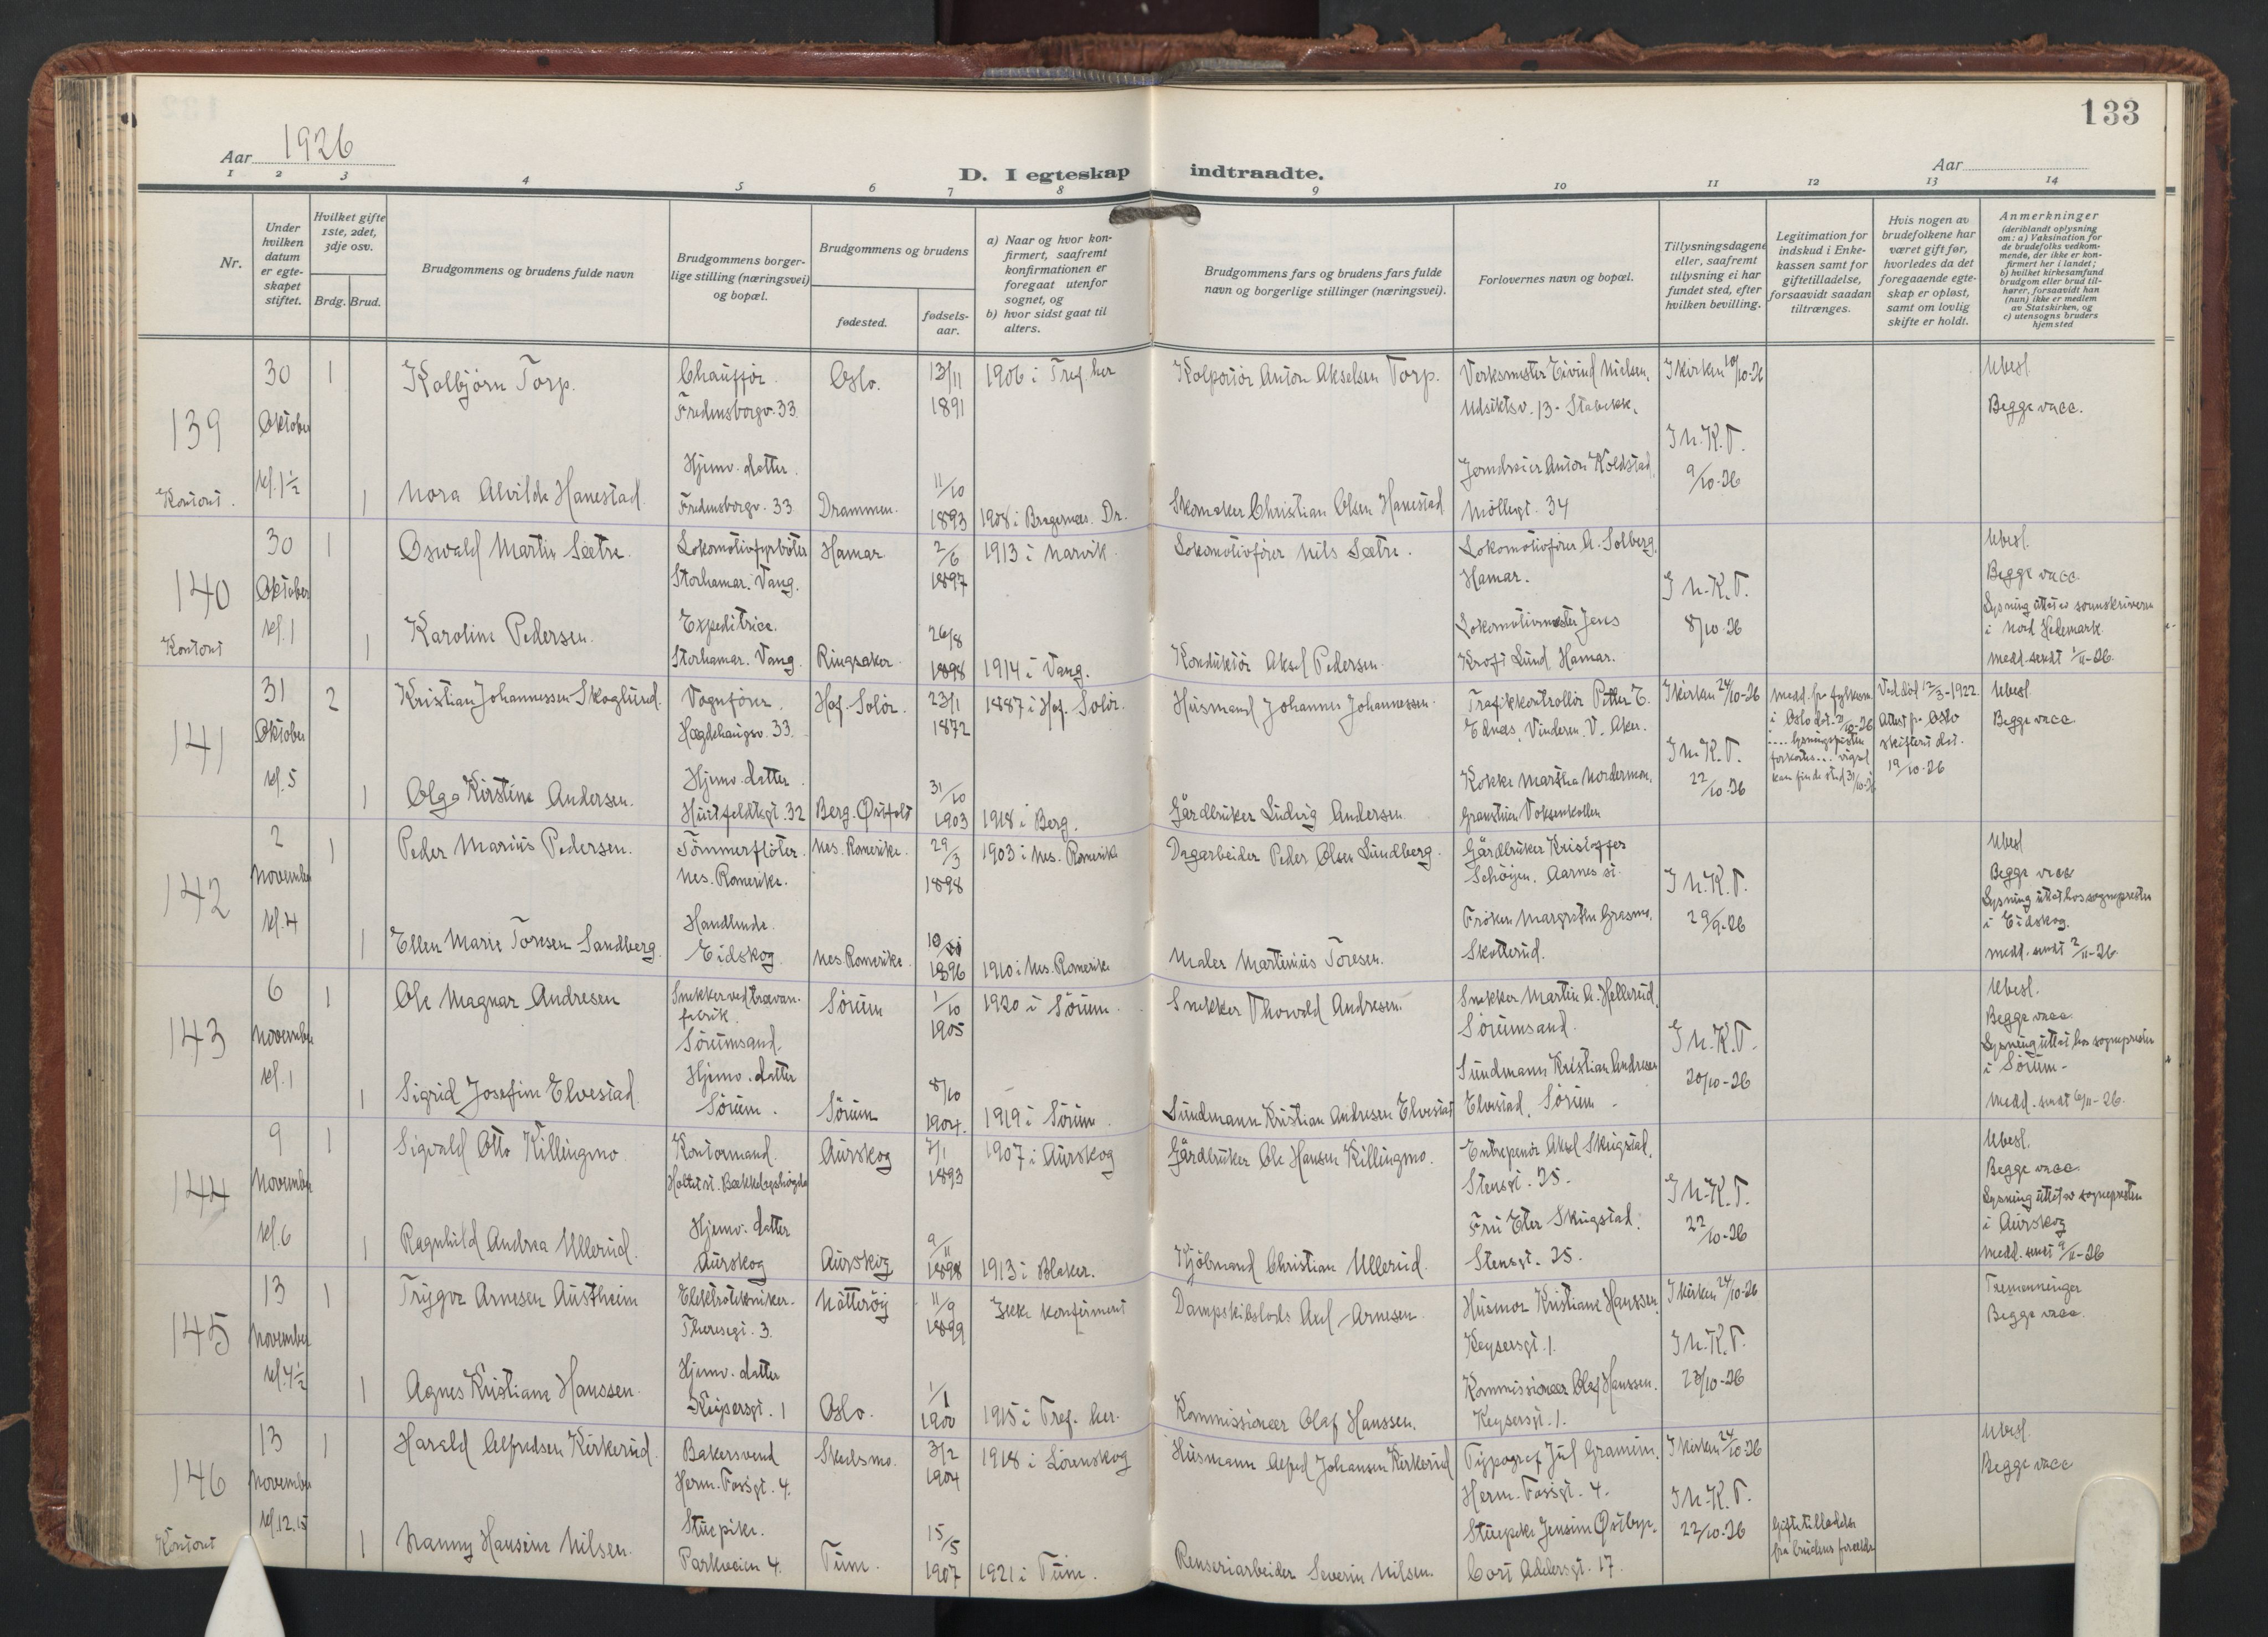 133
Aar 1926
D. I egteskap indtraadte.
Aar
1 2 3 4 5 6 7 8 9 10 11 12 13 14
Nr.
Under hvilken datum er egteskapet stiftet.
Hvilket gifte 1ste, 2det, 3dje osv.
Brdg. Brud.
Brudgommens og brudens fulde navn
Brudgommens borgerlige stilling (næringsvei) og bopæl.
Brudgommens og brudens
fødested.
fødselsaar.
a) Naar og hvor konfirmert, saafremt konfirmationen er foregaat utenfor sognet, og
b) hvor sidst gaat til alters.
Brudgommens fars og brudens fars fulde navn og borgerlige stillinger (næringsvei).
Forlovernes navn og bopæl.
Tillysningsdagene eller, saafremt tillysning ei har fundet sted, efter hvilken bevilling.
Legitimation for indskud i Enkekassen samt for giftetilladelse, forsaavidt saadan tiltrænges.
Hvis nogen av brudefolkene har været gift før, hvorledes da det foregaaende egteskap er opløst, samt om lovlig skifte er holdt.
Anmerkninger (deriblandt oplysning om: a) Vaksination for de brudefolks vedkommende, der ikke er konfirmert her i landet; b) hvilket kirkesamfund brudgom eller brud tilhører, forsaavidt han (hun) ikke er medlem av Statskirken, og c) utensogns bruders hjemsted
139
Kontort.
30 Oktober kl. 1½
1
Kolbjørn Torp.
Chauffør.
Fredensborgv. 33.
Oslo.
13/11 1891
1906 i Tref. her
Kolportør Anton Akselsen Torp.
Verksmester Eivind Nielsen,
Udsiktsv. 13 - Stabekk.
I kirken 10/10-26
Ubesl.
Begge vacc.
1
Nora Alvilde Hanestad.
Hjemv. datter.
Fredensborgv. 33
Drammen.
11/10 1893
1908 i Bragernes. Dr.
Skomaker Christian Olsen Hanestad
Jerndreier Anton Koldstad,
Møllergt. 34
I N.K.T.
9/10-26
140
Kontort
30 Oktober kl. 1
1
Oswald Martin Sætre.
Lokomotivfyrbøter
Storhamar. Vang.
Hamar
2/6 1897
1913 i Narvik.
Lokomotivfører Nils Sætre.
Lokomotivfører A. Solberg,
Hamar.
I N.K.T.
8/10-26
Ubesl.
Begge vacc.
i Nord Hedemark.
medd. sendt 1/11-26.
1
Karoline Pedersen.
Expeditrice.
Storhamar. Vang.
Ringsaker.
26/8 1898
1914 i Vang.
Konduktør Aksel Pedersen
Lokomotivmester Jens
Kroft Lund Hamar.
141
31 Oktober kl. 5
2
Kristian Johannessen Skoglund.
Vognfører.
Hægdehaugsv. 33.
Hof. Solør.
23/1 1872
1887 i Hof. Solør.
Husmand Johannes Johannessen.
Trafikkontrollør Petter E.
Ednes, Vinderen. V. Aker.
I kirken 24/10-26
I N.K.T.
22/10-26
Ved død 12/3-1922.
Attest fr. Oslo
skifteret dat.
19/10-26
Ubesl.
Begge vacc.
1
Olga Kirstine Andersen.
Hjemv. datter.
Huitfeldtsgt. 32
Berg. Østfold
31/10 1903
1918 i Berg.
Gårdbruker Ludvig Andersen
Kokke Martha Nordermoen,
Granstuen Voksenkollen
142
2 November kl. 4
1
Peder Marius Pedersen.
Tømmerfløter.
Nes. Romerike.
Nes. Romerike.
29/3 1898
1903 i Nes. Romerike
Dagarbeider Peder Olsen Sundberg.
Gårdbruker Kristoffer
Schøyen. Aarnes st.
I N.K.T.
29/9-26
Ubesl
Begge vacc
Lysning uttat hos sognepresten
i Eidskog.
medd. sendt 2/11-26.
1
Ellen Marie Toresen Sandberg.
Handlende.
Eidskog.
Nes. Romerike.
1896
1910 i Nes. Romerike
Maler Martinius Toresen.
Frøken Margrethe Grasmo,
Skotterud.
143
6 November kl. 1
1
Ole Magnar Andresen
Snekker ved trævarefabrik.
Sørumsand.
Sørum
1/10 1905
1920 i Sørum.
Snekker Thorvald Andresen.
Snekker Martin A. Hellerud,
Sørumsand.
I N.K.T.
20/10-26
Ubesl.
Begge vacc.
Lysning uttat hos sognepresten
i Sørum -
medd. sendt 6/11-26.
1
Sigrid Josefine Elvestad.
Hjemv. datter
Sørum.
Sørum
8/10 1904.
1919 i Sørum.
Sundmann Kristian Andresen Elvestad
Sundmann Kristian Andresen
Elvestad, Sørum -
144
9 November kl. 6
1
Sigvald Otto Killingmo
Kontormand.
Holtet st. Bækkelagshøgda
Aurskog
7/1 1893
1907 i Aurskog
Gårdbruker Ole Hansen Killingmo.
Entrepenør Aksel Skugstad,
Stensgt. 25.
I N.K.T.
22/10-26
Ubesl.
Begge vacc.
Lysning uttat av sognepresten
i Aurskog
medd. sendt 9/11-26
1
Ragnhild Andrea Ullerud.
Hjemv. datter
Aurskog
Aurskog
9/11 1898
1913 i Blaker.
Kjøbmand Christian Ullerud.
Fru Ester Skugstad.
Stensgt. 25.
145
13 November kl. 4½
1
Trygve Arnesen Austheim
Elektrotekniker.
Theresegt. 3.
Nøtterøy
11/9 1899
Ikke konfirmert
Dampskibslods Axel Arnesen.
Husmor Kristiane Hanssen,
Keysersgt. 1.
I kirken 24/10-26
I N.K.T.
23/10-26
Tremenninger
Begge vacc.
1
Agnes Kristiane Hanssen.
Hjemv. datter
Keysersgt. 1
Oslo.
1/1 1900
1915 i Tref. her.
Kommissionær Olaf Hanssen.
Kommissionær Olaf Hanssen.
Keysersgt. 1.
146
Kontort
13 November kl. 12.15
1
Harald Alfredsen Kirkerud.
Bakersvend
Herm. Fossgt. 4.
Skedsmo.
3/2 1904
1918 i Lørenskog
Husmann Alfred Johansen Kirkerud
Typograf Jul Gramim.
Herm. Fossgt. 4.
I kirken 24/10-26
I N.K.T.
22/10-26
Giftetilladelse
fra brudens forældre
Ubesl.
Begge vacc
1
Nanny Hansine Nilsen.
Stuepike.
Parkveien 4.
Tune.
15/5 1907
1921 i Tune.
Renseriarbeider Severin Nilsen.
Stuepike Jensine Østbye.
Cort Adelersgt. 17.